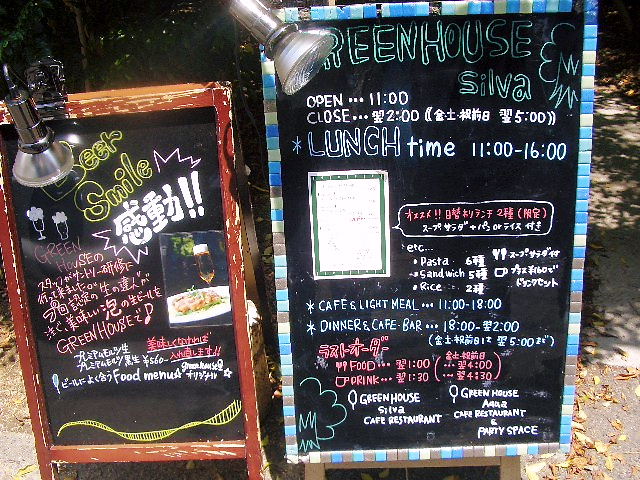 Beer
Smile
感動!!
GREEN
HOUSEの
スタッフがサントリー研修に
行って来ました!!
認定の"生の達人"が
注ぐ美味しい泡の生ビールを
GREENHOUSEで♪
美味しくなければ
入れ直します!!
プレミアムモルツ生
プレミアムモルツ黒生 ¥560-
ビールによく合うfood menu☆
green house
オリジナル
GREENHOUSE
silva
OPEN… 11:00
CLOSE… 翌2:00 《金土・祝前日 翌5:00》
*LUNCH time 11:00-16:00
オススメ!! 日替わりランチ2種(限定)
スープ サラダ + パン or ライス 付き
etc...
• Pasta… 6種
• Sandwich 5種
• Rice … 2種
スープ サラダ付
プラス¥160で
ドリンクセット
* CAFE & LIGHT MEAL … 11:00-18:00
* DINNER & CAFE・BAR … 18:00-翌2:00
(金土・祝前日 翌5:00まで)
ラストオーダー
FOOD… 翌1:00
DRINK… 翌1:30
金土・祝前日
… 翌4:00
… 翌4:30
GREEN HOUSE
Silva
CAFE RESTAURANT
GREEN HOUSE
Aqua
CAFE RESTAURANT
&
PARTY SPACE